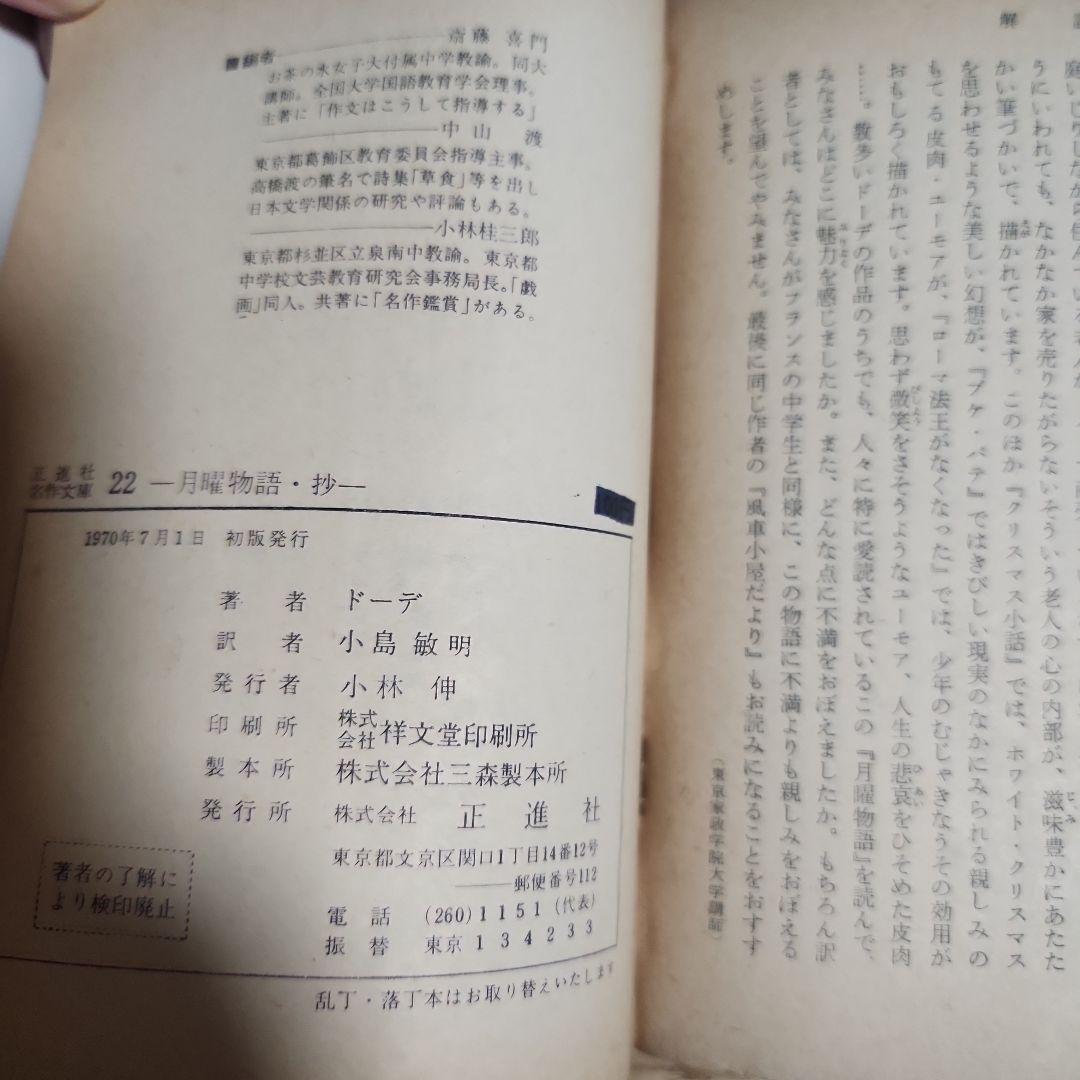 編纂者
斎藤喜門
お茶の水女子大付属中学教諭。同大
講師。全国大学国語教育学会理事。
主著に「作文はこうして指導する」
中山渡
東京都葛飾区教育委員会指導主事。
高橋渡の筆名で詩集「草食」等を出し
日本文学関係の研究や評論もある。
小林桂三郎
東京都杉並区立泉南中教諭。東京都
中学校文芸教育研究会事務局長。「戯
画」同人。共著に「名作鑑賞」がある。
正進社
名作文庫 22 ―月曜物語・抄―
1970年7月1日 初版発行
著者 ドーデ
訳者 小島敏明
発行者 小林伸
印刷所 株式会社祥文堂印刷所
製本所 株式会社三森製本所
発行所 株式会社 正進社
東京都文京区関口1丁目14番12号
――郵便番号112
電話 (260)1151(代表)
振替 東京 134233
著者の了解に
より検印廃止
乱丁・落丁本はお取り替えいたします
解
うにいわれても、なかなか家を売りたがらないそういう老人の心の内部が、滋味豊かにあたた
かい筆づかいで、描かれています。このほか『クリスマス小話』では、ホワイト・クリスマス
を思わせるような美しい幻想が、『ブケ・パテ』ではきびしい現実のなかにみられる親しみの
もてる皮肉・ユーモアが、『ローマ法王がなくなった』では、少年のむじゃきなうその効用が
おもしろく描かれています。思わず微笑をさそうようなユーモア、人生の悲哀をひそめた皮肉
……。数多いドーデの作品のうちでも、人々に特に愛読されているこの『月曜物語』を読んで、
みなさんはどこに魅力を感じましたか。また、どんな点に不満をおぼえましたか。もちろん訳
者としては、みなさんがフランスの中学生と同様に、この物語に不満よりも親しみをおぼえる
ことを望んでやみません。最後に同じ作者の『風車小屋だより』もお読みになることをおすす
めします。
(東京家政学院大学講師)